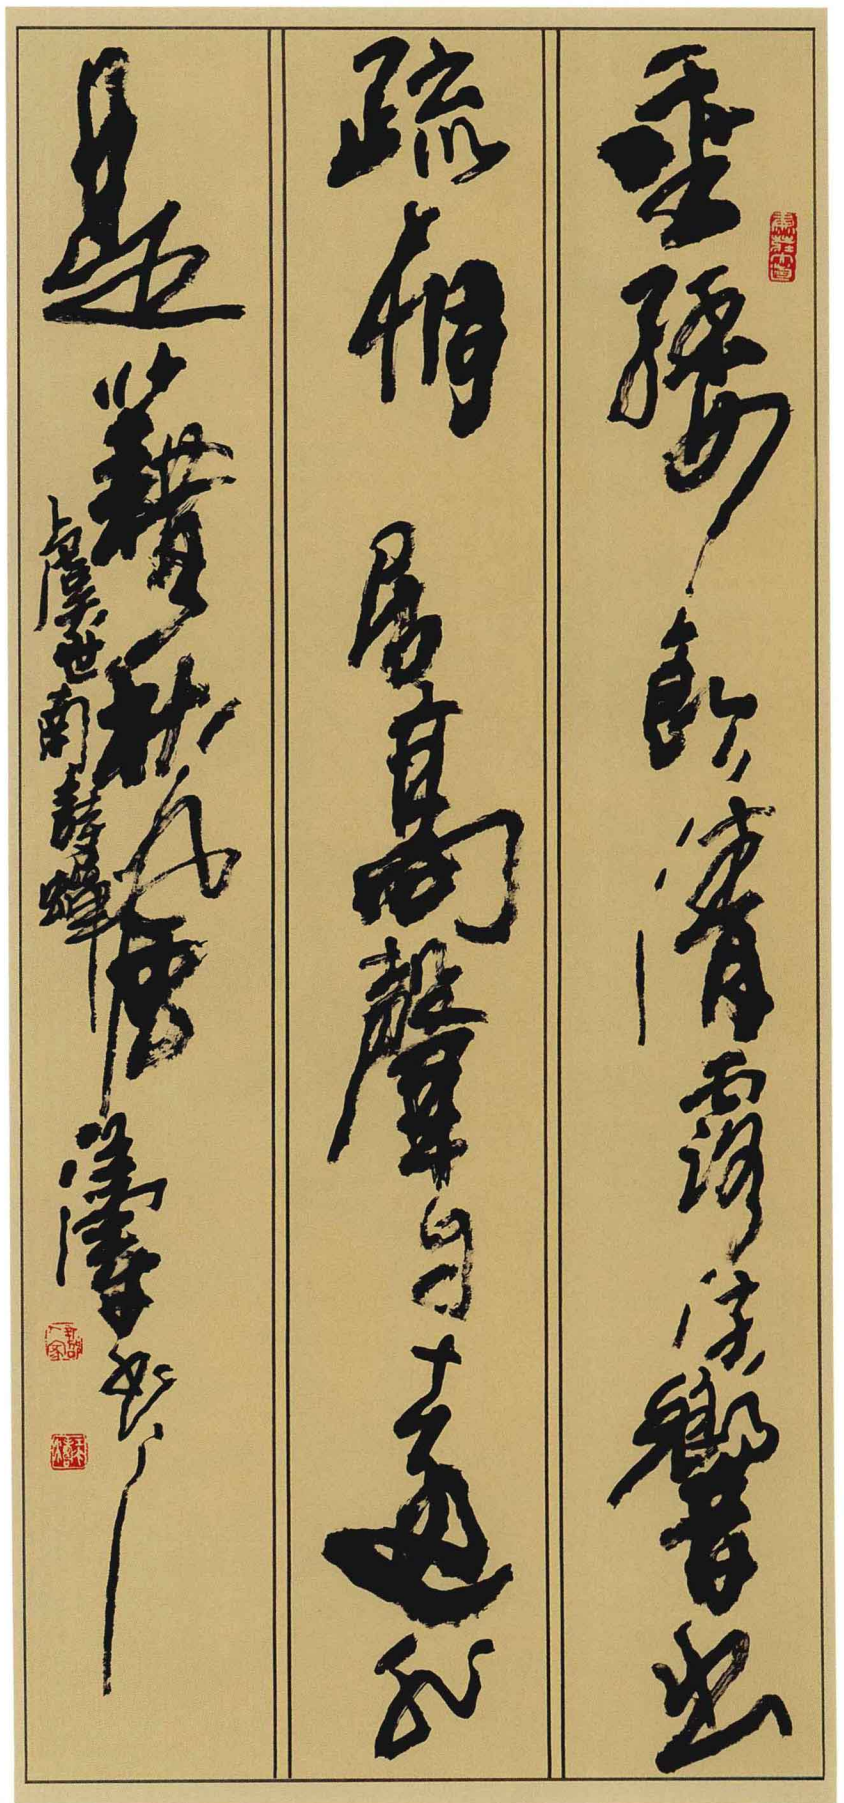 垂緌飲清露流響出
疏桐居高聲自遠非
是藉秋風
虞世南詩蟬
書